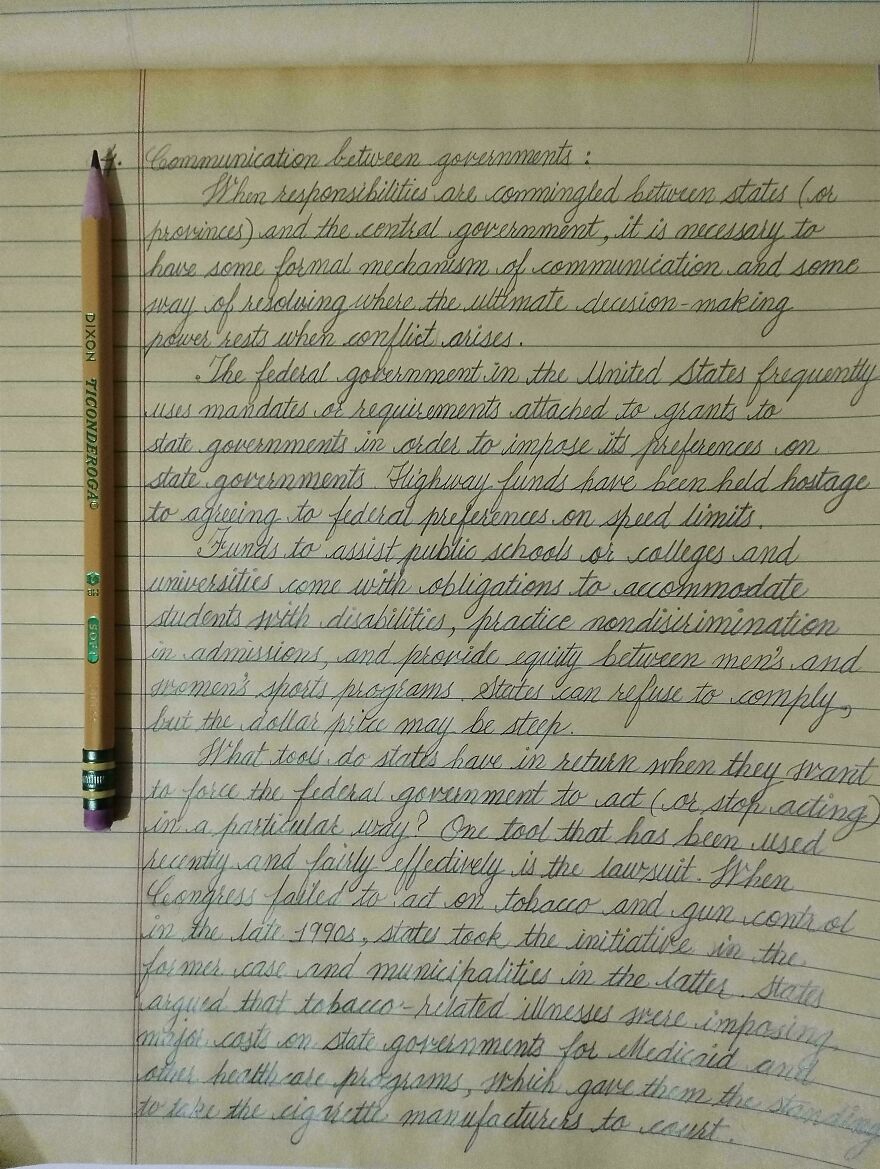 4. Communication between governments :
When responsibilities are commingled between states (or
provinces) and the central government, it is necessary to
have some formal mechanism of communication and some
way of resolving where the ultimate decision-making
power rests when conflict arises.
The federal government in the United States frequently
uses mandates or requirements attached to grants to
state governments in order to impose its preferences on
state governments. Highway funds have been held hostage
to agreeing to federal preferences on speed limits.
Funds to assist public schools or colleges and
universities come with obligations to accommodate
students with disabilities, practice nondisirimination
in admissions, and provide equity between men's and
women's sports programs. States can refuse to comply,
but the dollar price may be steep.
What tools do states have in return when they want
to force the federal government to act (or stop acting)
in a particular way? One tool that has been used
recently and fairly effectively is the lawsuit. When
Congress failed to act on tobacco and gun control
in the late 1990s, states took the initiative in the
former case and municipalities in the latter. States
argued that tobacco-related illnesses were imposing
major costs on state governments for Medicaid and
other health care programs, which gave them the standing
to take the cigarette manufacturers to court.
DIXON TICONDEROGA®
2 HB
SOFT